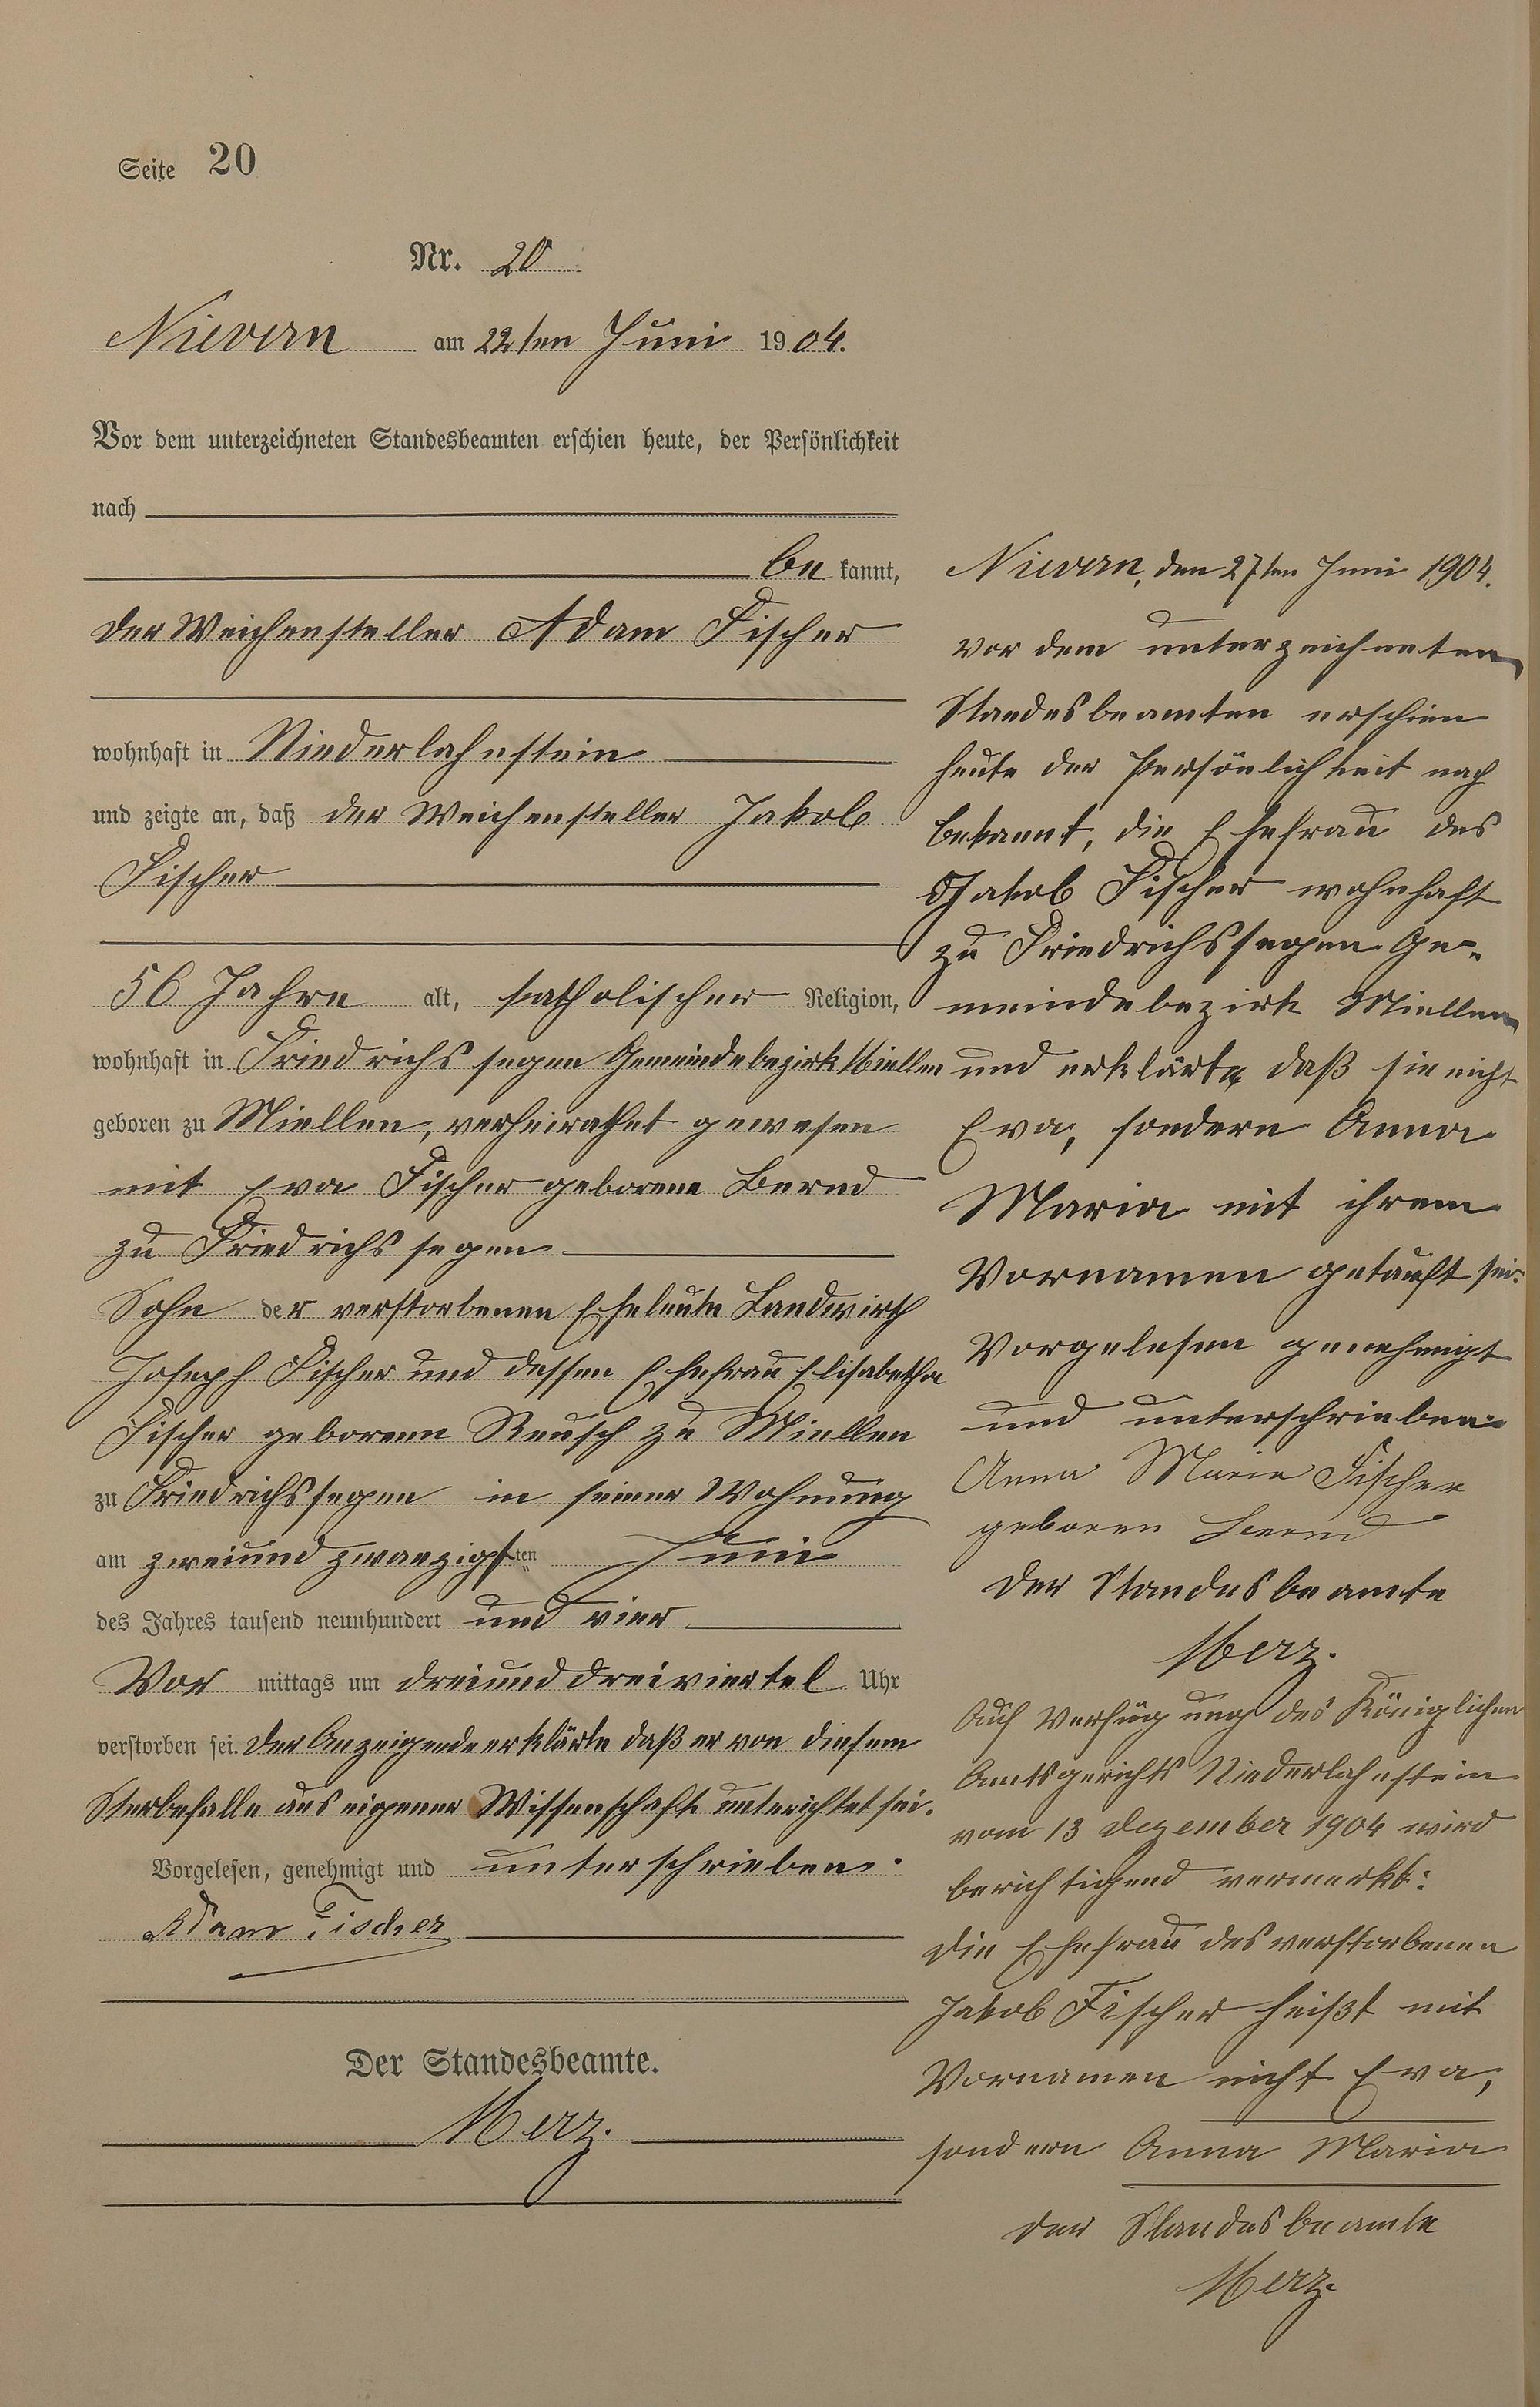 Seite 20
Nr. 20
Nievern am 22ten Juni 1904.
Vor dem unterzeichneten Standesbeamten erschien heute, der Persönlichkeit
nach
be kannt,
der Weichensteller Adam Fischer
wohnhaft in Niederlahnstein
und zeigte an, daß der Weichensteller Jakob
Fischer
56 Jahre alt, katholischer Religion,
wohnhaft in Friedrichssegen Gemeindebezirk Miellen
geboren zu Miellen, verheirathet gewesen
mit Eva Fischer geborene Bernd
zu Friedrichssegen
Sohn der verstorbenen Eheleute Landwirth
Joseph Fischer und dessen Ehefrau Elisabetha
Fischer geborenen Reusch zu Miellen
zu Friedrichssegen in seiner Wohnung
am zweiundzwanzigsten Juni
des Jahres tausend neunhundert und vier
Vor mittags um dreiunddreiviertel Uhr
verstorben sei. Der Anzeigende erklärte daß er von diesem
Sterbefalle aus eigener Wissenschaft unterichtet sei.
Vorgelesen, genehmigt und unterschrieben.
Adam Fischer
Der Standesbeamte.
Merz.
Nievern, den 27ten Juni 1904.
Vor dem unterzeichneten
Standesbeamten erschien
heute der Persönlichkeit nach
bekannt, die Ehefrau des
Jakob Fischer wohnhaft
zu Friedrichssegen Ge-
meindebezirk Miellen
und erklärte daß sie nicht
Eva, sondern Anna
Maria mit ihrem
Vornamen getauft sei.
Vorgelesen genehmigt
und unterschrieben
Anna Maria Fischer
geboren Bernd
Der Standesbeamte
Merz.
Auf Verfügung des Königlichen
Amtsgerichts Niederlahnstein
vom 13 Dezember 1904 wird
berichtigend vermerkt:
Die Ehefrau des verstorbenen
Jakob Fischer heißt mit
Vornamen nicht Eva,
sondern Anna Maria
Der Standesbeamte
Merz.